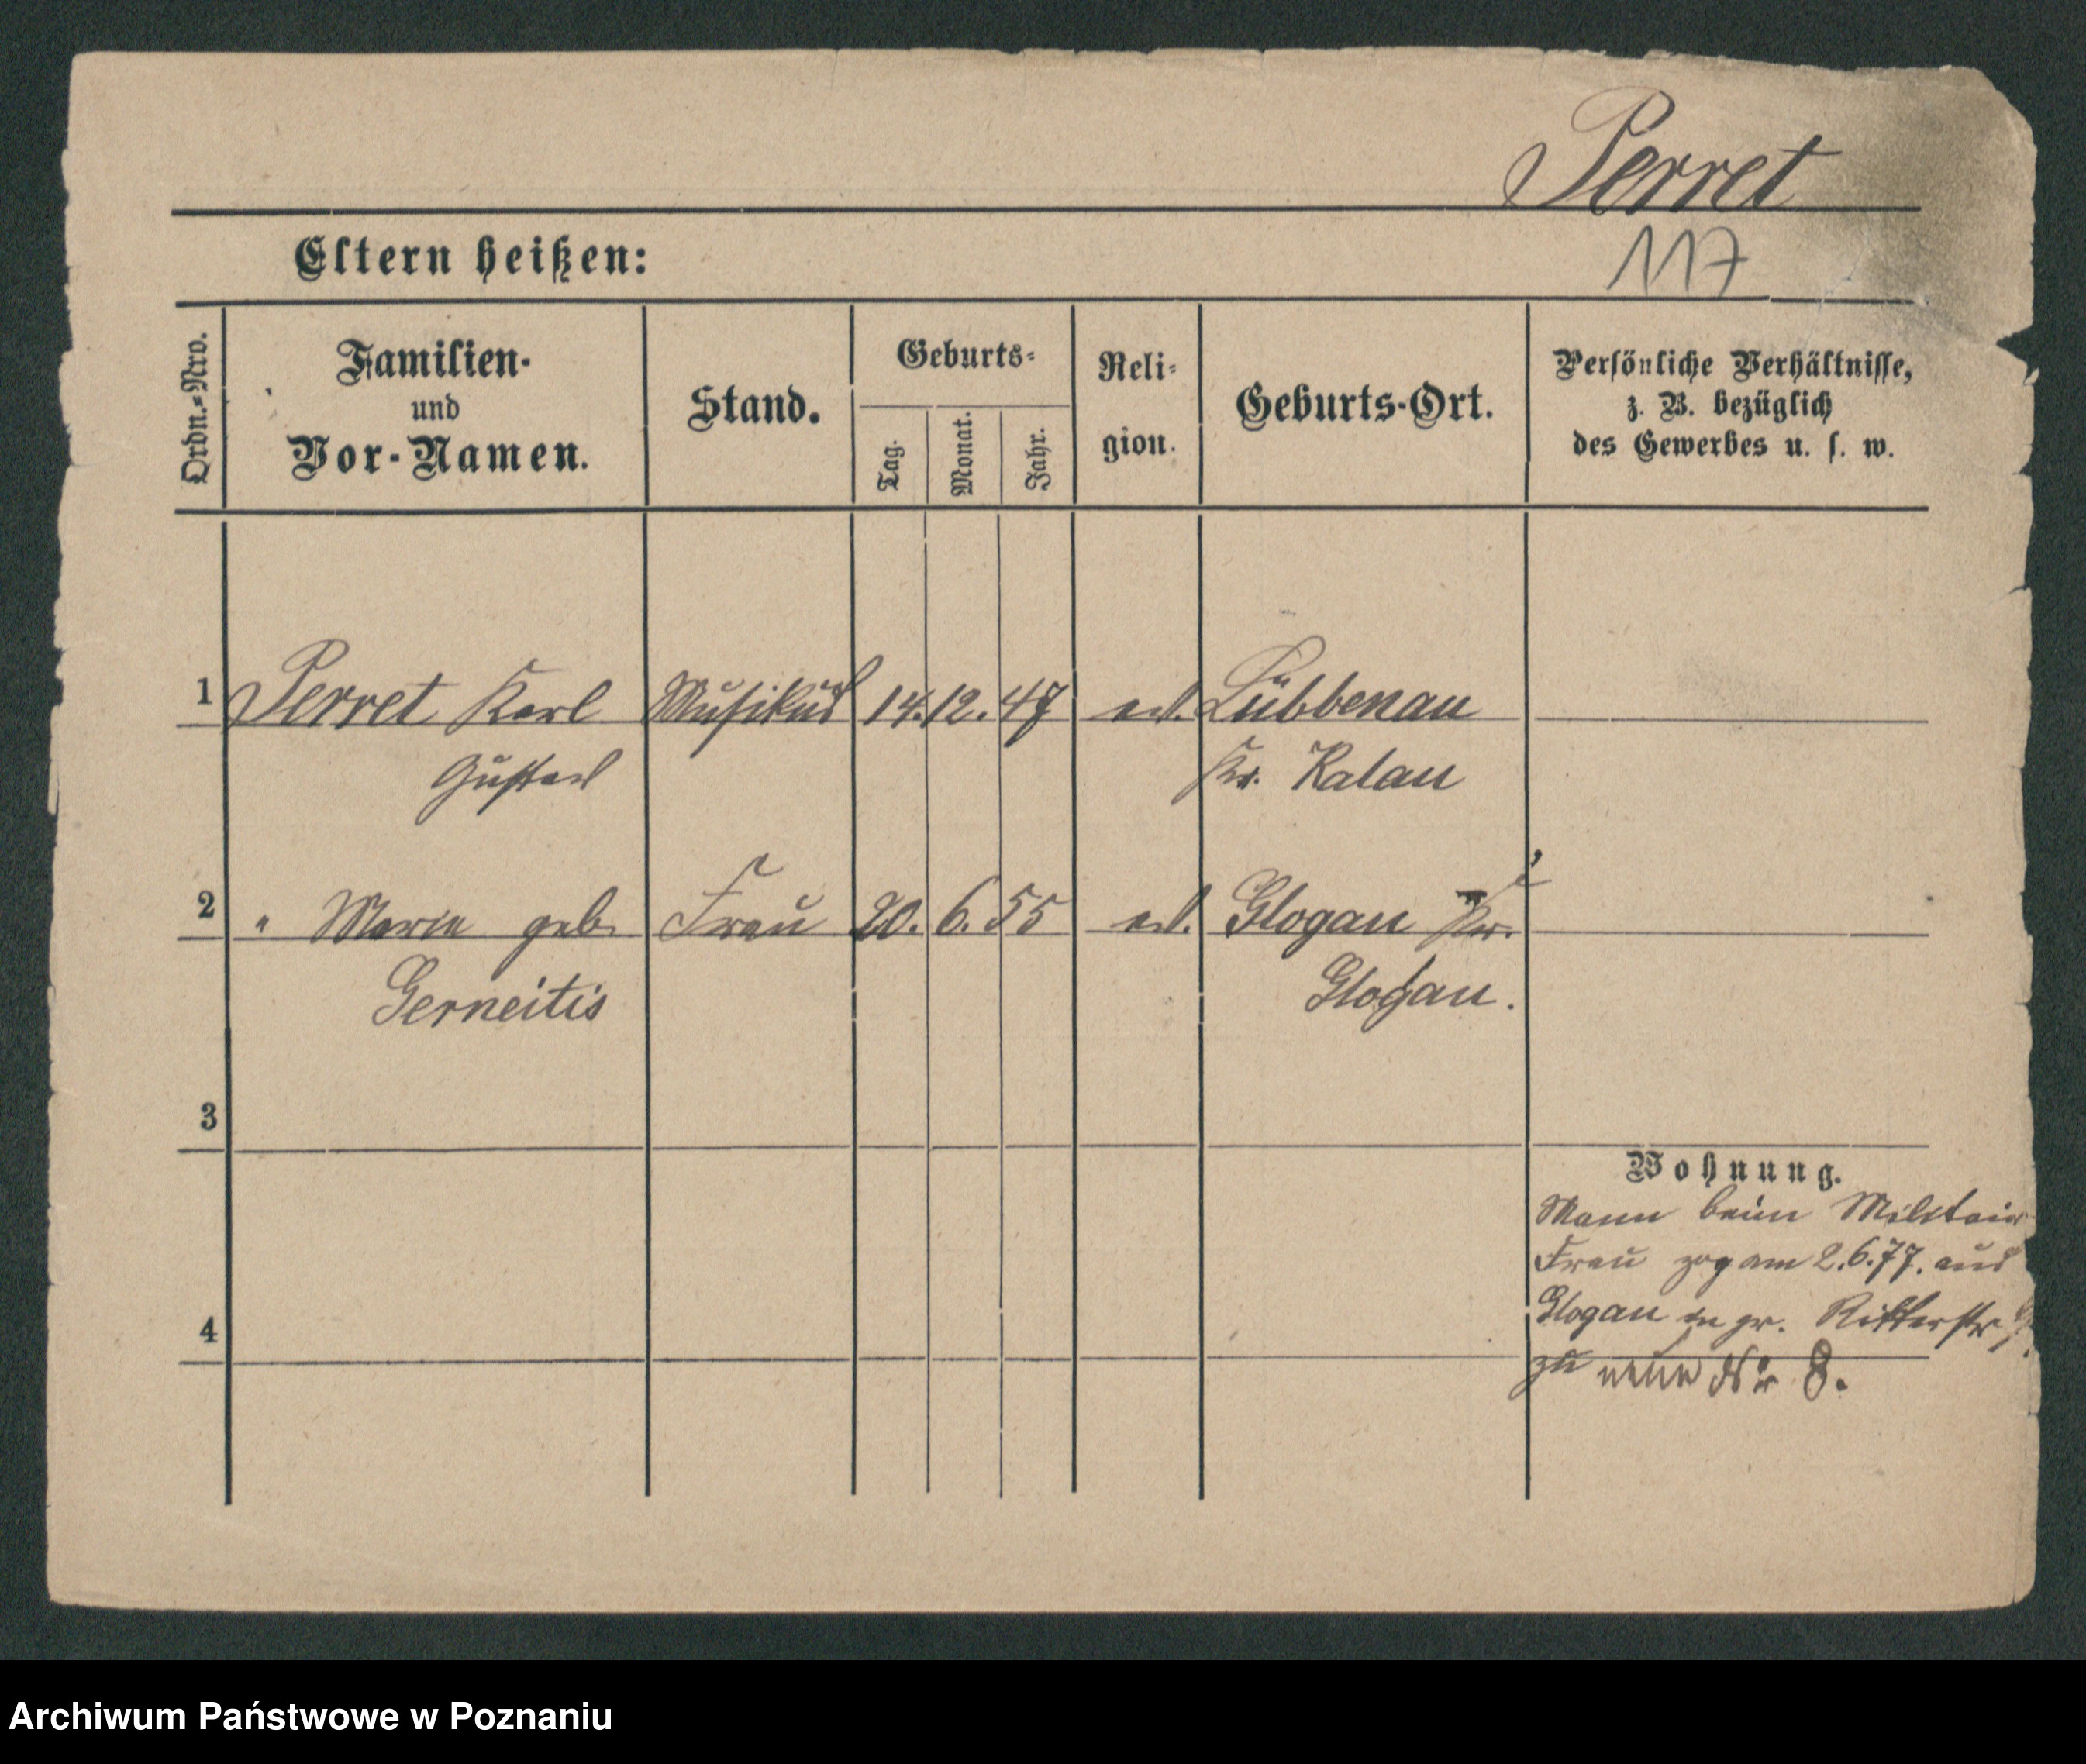 Perret
Eltern heißen:
117
Ordn.-Nro.
Familien-
und
Vor-Namen.
Stand.
Geburts-
Tag.
Monat.
Jahr.
Reli-
gion.
Geburts-Ort.
Persönliche Verhältnisse,
z. B. bezüglich
des Gewerbes u. s. w.
1 Perret Karl Musikus 14. 12. 47 ev. Lübbenau
Gustav Kr. Kalau
2 " Maria geb. Frau 20. 6. 55 ev. Glogau Kr.
Gerneitis Glogau.
3
Wohnung.
Mann beim Militair
Frau zog am 2.6.77. aus
4
Glogau in gr. Ritterstr
zu neue Nr 8.
Archiwum Państwowe w Poznaniu